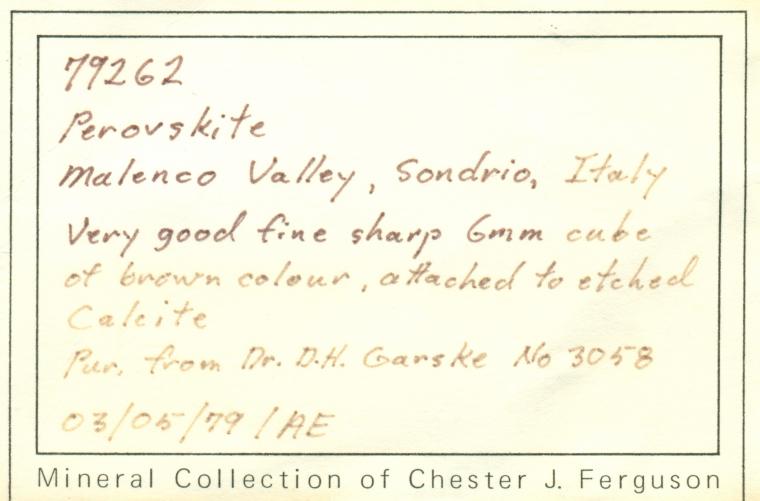 79262
Perovskite
Malenco Valley, Sondrio, Italy
Very good fine sharp 6mm cube
of brown colour, attached to etched
Calcite
Pur. from Dr. D.H. Garske No 3058
03/05/79 / AE
Mineral Collection of Chester J. Ferguson